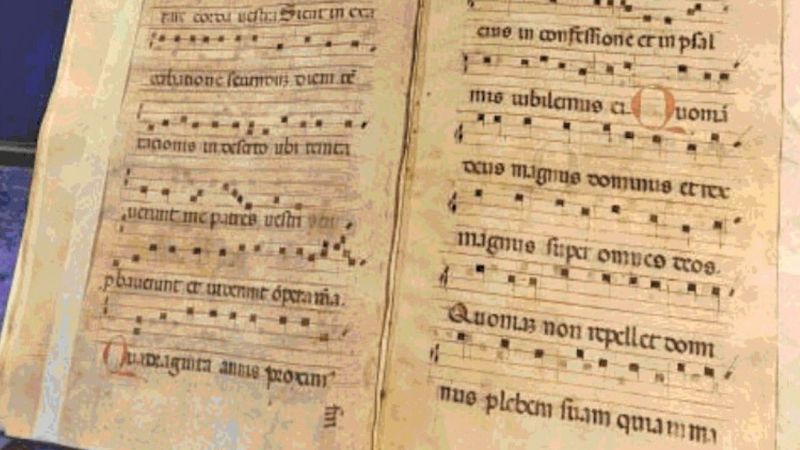 corda vestra Sicut in exa
cerbatione secunduz diem tē
tationis in deserto ubi tenta
verunt me patres vestri
pbaverunt et viderunt opera mā.
Quadraginta annis proxim'
eius in confessione et in psal
mis iubilemus ei Quoniā
deus magnus dominus et rex
magnus super omnes deos.
Quoniaz non repellet domi
nus plebem suam quia in ma